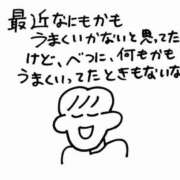 最近なにもかも
うまくいかないと思ってた
けど、べつに、何もかも
うまくいってたときもないな